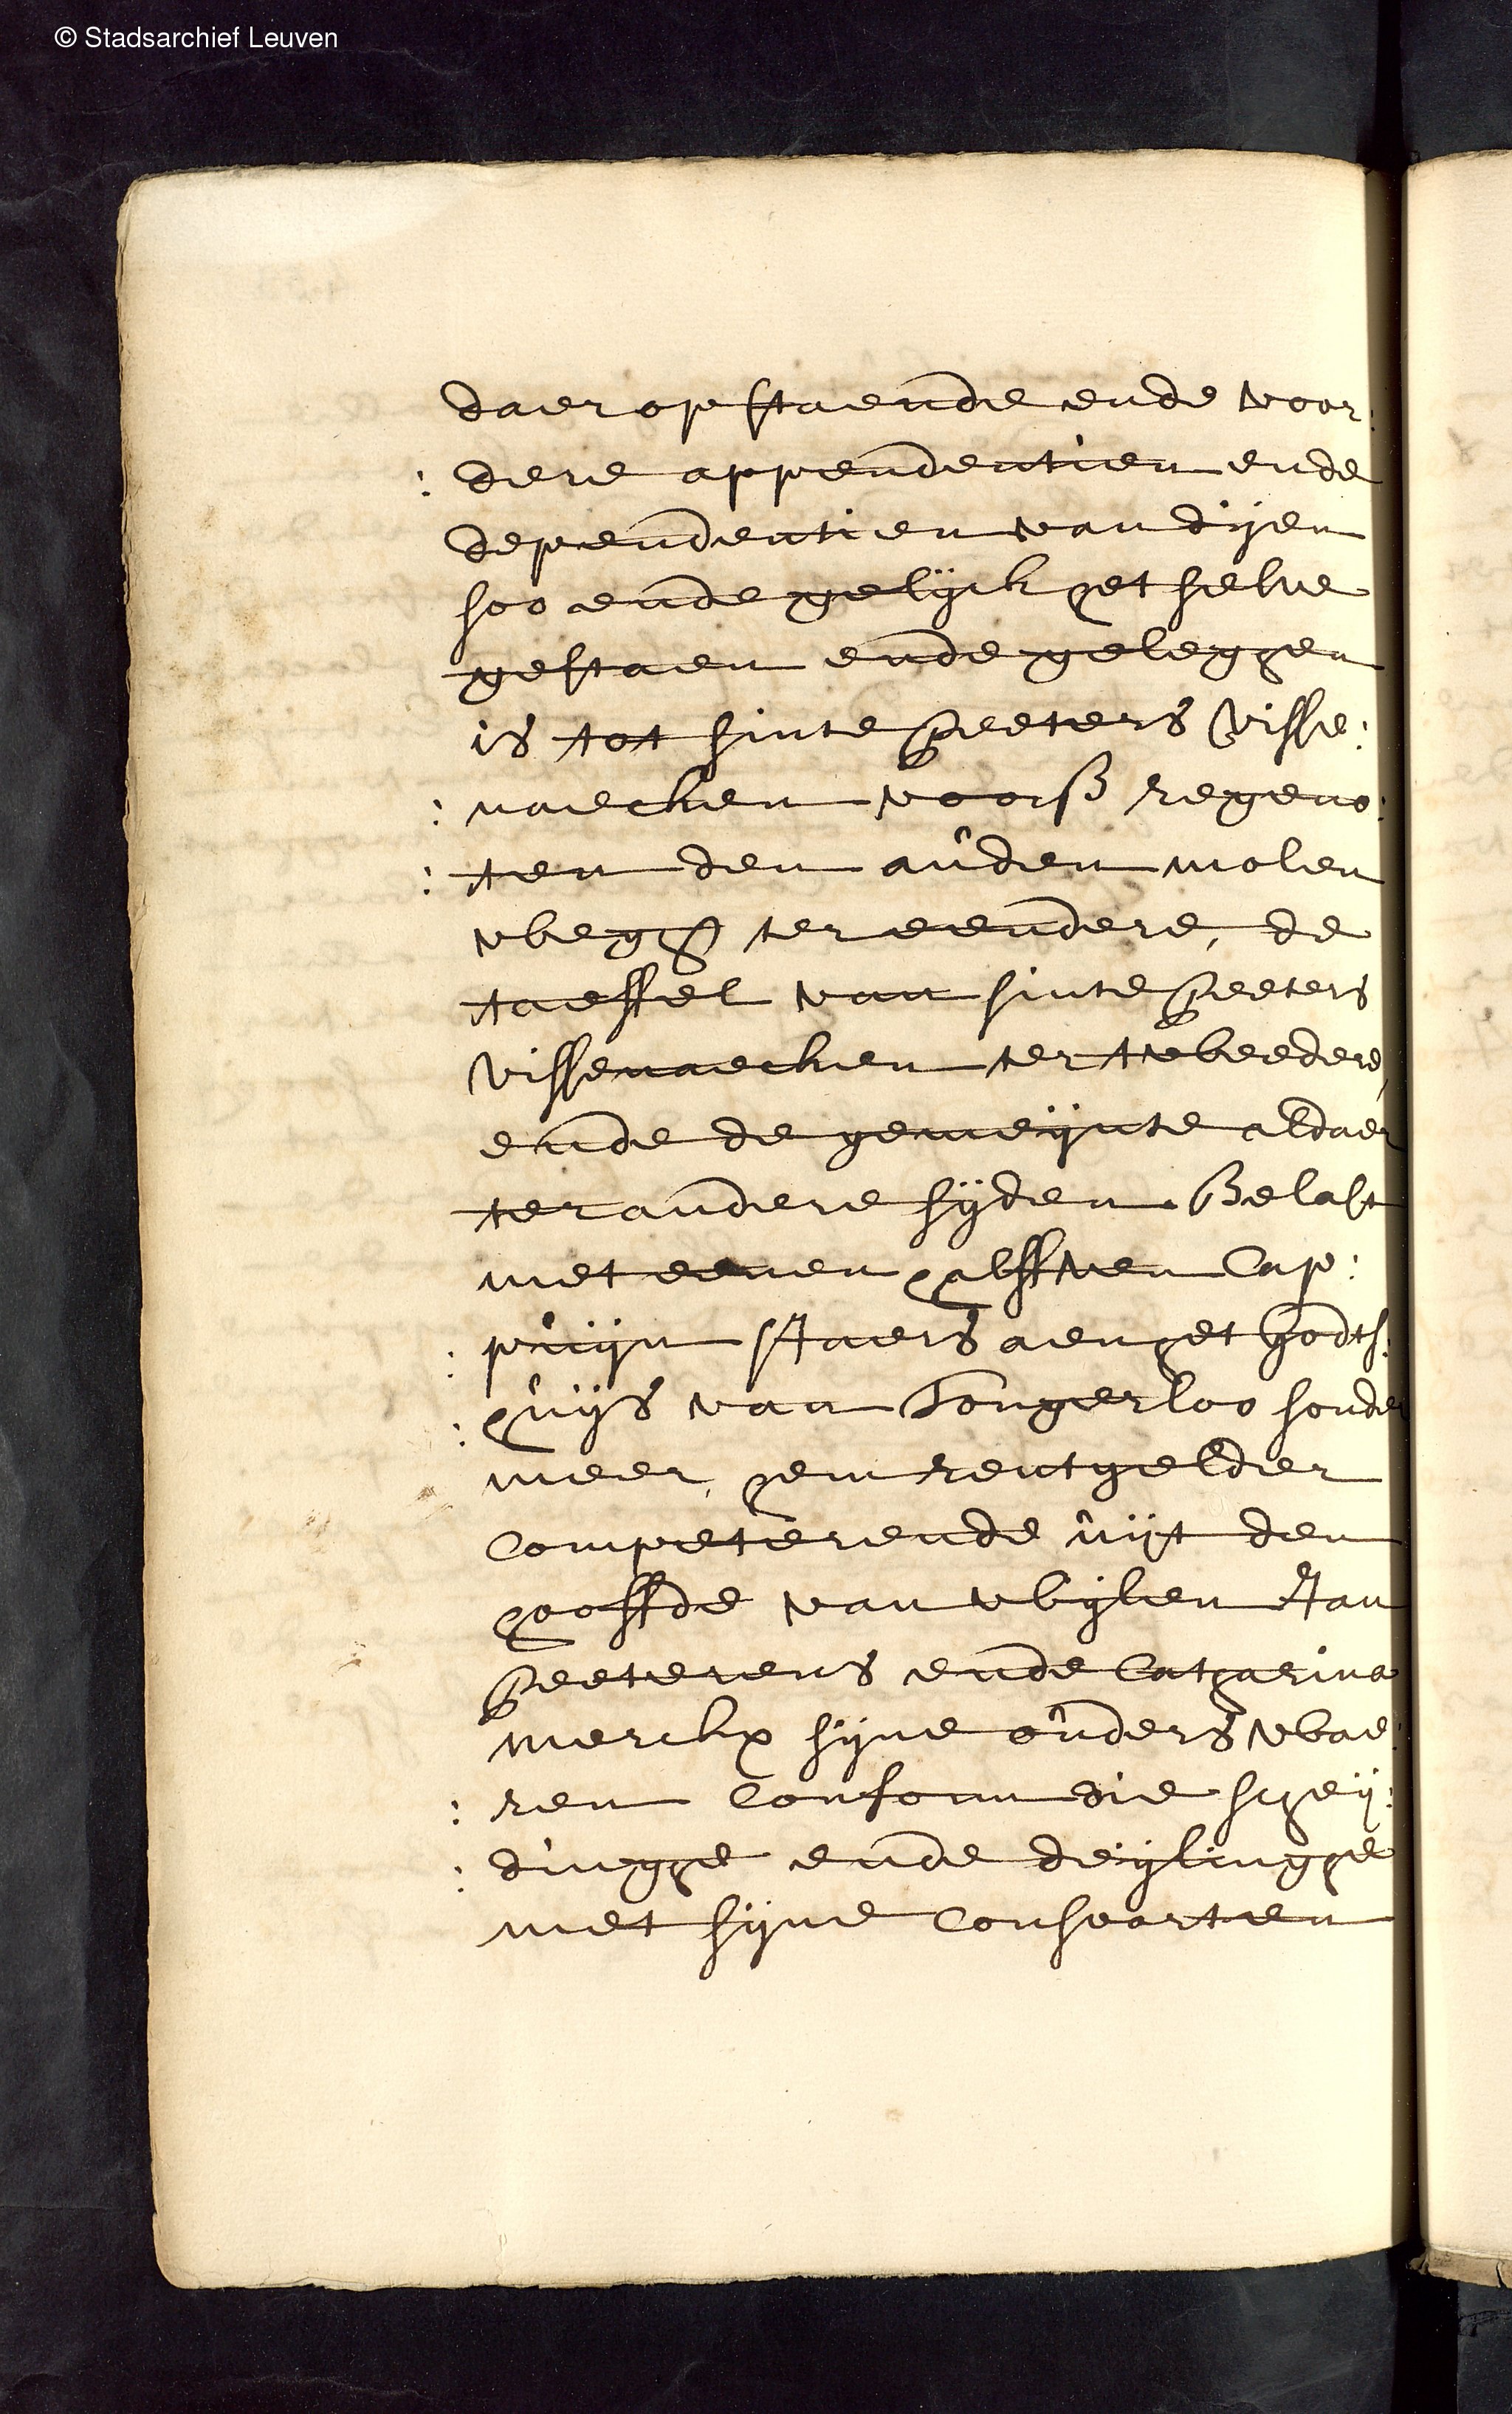 © Stadsarchief Leuven
daer op staende ende voor:
: dere appendentien ende
dependentien van dijen
soo ende gelijck het selve
gestaen ende geleghen
is tot sinte Peeters Visse:
: naecken voors regeno:
: ten den auden molen
wegh ter eendere, de
taeffel van sinte Peeters
Vissenaecken ter tweedere,
ende de gemeijnte aldaer
ter andere sijden. Belast
met eenen halffven Cap:
: puijn sJaers aen het Godts:
: huijs van Tongerloo sonder
meer, hem rentgelder
Competerende uijt den
hooffde van wijlen Jan
Peeterens ende Catharina
Merckx sijne ouders wae:
: ren Conform die scheij:
: dinghe ende deijlinghe
met sijne Consoorten